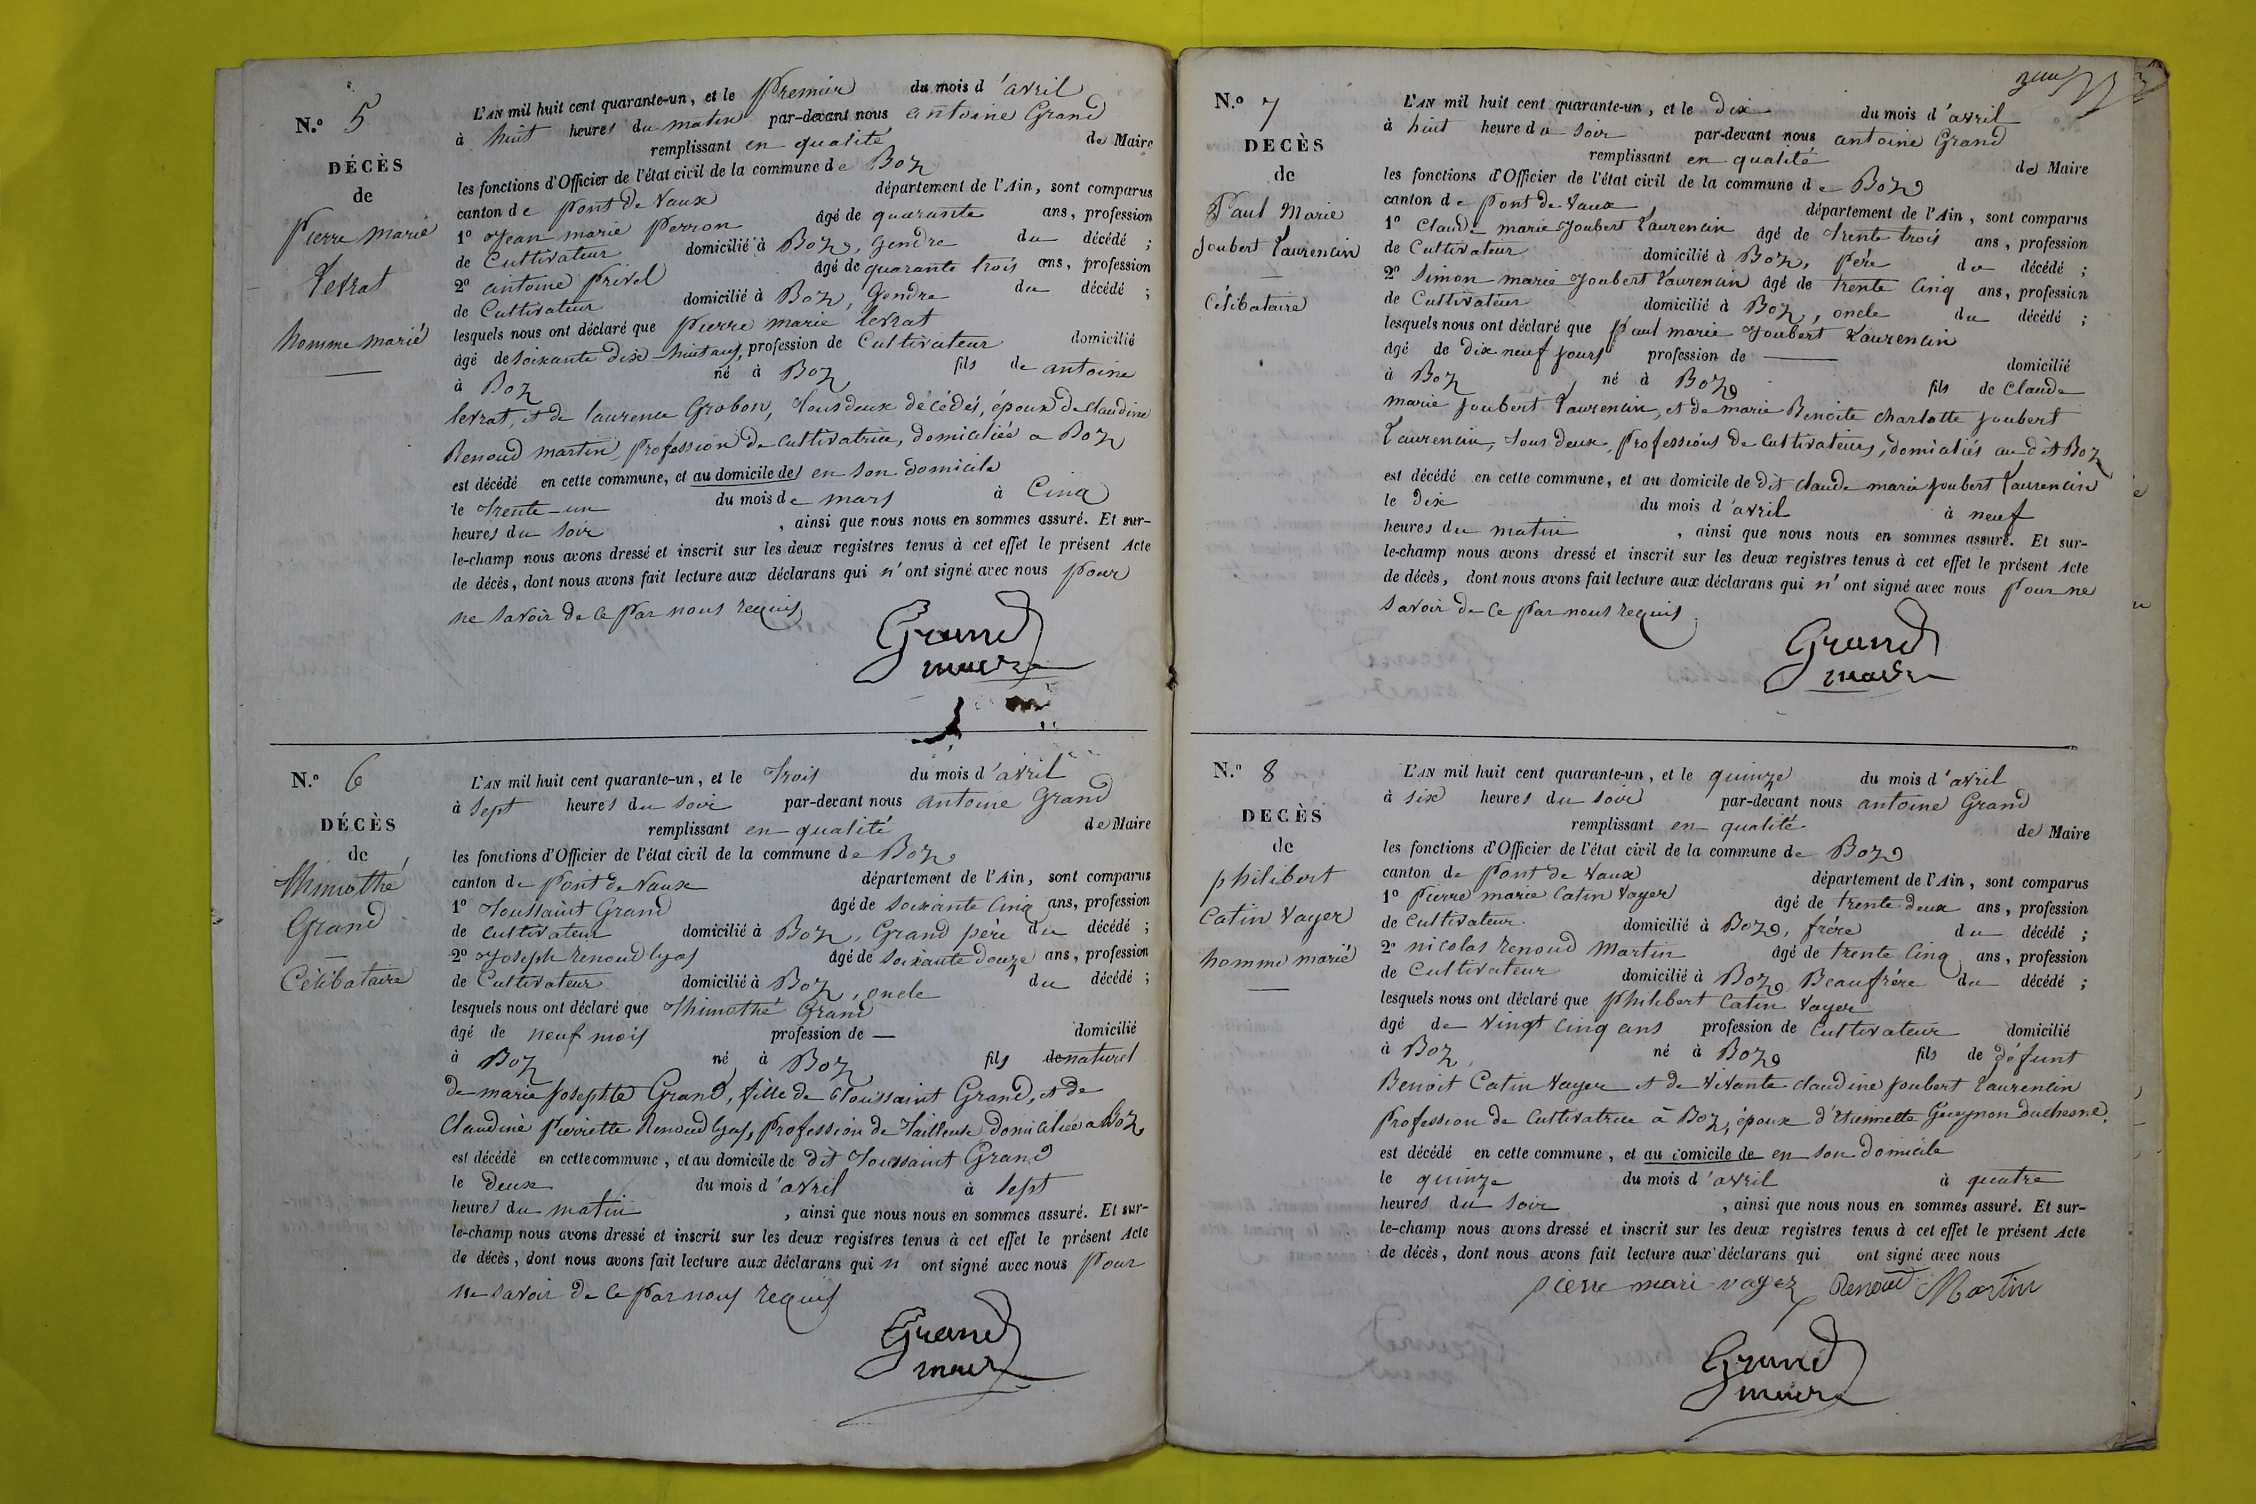 N.º 5
DÉCÈS
de
Pierre marie
Levrat
homme marié
L'AN mil huit cent quarante-un, et le Premier du mois d'avril
à huit heures du matin par-devant nous antoine Grand
remplissant en qualité de Maire
les fonctions d'Officier de l'état civil de la commune de Boz
canton de Pont de Vaux département de l'Ain, sont comparus
1º Jean marie Perron âgé de quarante ans, profession
de Cultivateur domicilié à Boz, Gendre du décédé ;
2º antoine Privel âgé de quarante trois ans, profession
de Cultivateur domicilié à Boz, Gendre du décédé ;
lesquels nous ont déclaré que Pierre marie levrat
âgé de soixante dix-huit ans, profession de Cultivateur domicilié
à Boz né à Boz fils de antoine
levrat, et de laurence Grobon, tous deux décédés, époux de claudine
Renoud martin, profession de cultivatrice, domiciliée a Boz
est décédé en cette commune, et au domicile de en son domicile
le trente-un du mois de mars à Cinq
heures du soir , ainsi que nous nous en sommes assuré. Et sur-
le-champ nous avons dressé et inscrit sur les deux registres tenus à cet effet le présent Acte
de décès, dont nous avons fait lecture aux déclarans qui n'ont signé avec nous Pour
ne savoir de ce par nous requis
Grand
maire
N.º 6
DÉCÈS
de
Thimothé
Grand
Célibataire
L'AN mil huit cent quarante-un, et le trois du mois d'avril
à sept heures du soir par-devant nous antoine Grand
remplissant en qualité de Maire
les fonctions d'Officier de l'état civil de la commune de Boz
canton de Pont de Vaux département de l'Ain, sont comparus
1º Toussaint Grand âgé de soixante cinq ans, profession
de cultivateur domicilié à Boz, Grand père du décédé ;
2º Joseph renoud lyas âgé de soixante douze ans, profession
de Cultivateur domicilié à Boz, oncle du décédé ;
lesquels nous ont déclaré que Thimothé Grand
âgé de neuf mois profession de — domicilié
à Boz né à Boz fils de naturel
de marie Josephte Grand, fille de Toussaint Grand, et de
Claudine Pierrette Renoud lyas, profession de tailleuse domiciliée a Boz
est décédé en cette commune, et au domicile de dit Toussaint Grand
le deux du mois d'avril à sept
heures du matin , ainsi que nous nous en sommes assuré. Et sur-
le-champ nous avons dressé et inscrit sur les deux registres tenus à cet effet le présent Acte
de décès, dont nous avons fait lecture aux déclarans qui n ont signé avec nous Pour
ne savoir de ce par nous requis
Grand
maire
N.º 7
DECÈS
de
Paul Marie
Joubert Laurencin
Célibataire
L'AN mil huit cent quarante-un, et le dix du mois d'avril
à huit heure du soir par-devant nous antoine Grand
remplissant en qualité de Maire
les fonctions d'Officier de l'état civil de la commune de Boz
canton de Pont de Vaux département de l'Ain, sont comparus
1º Claude marie Joubert Laurencin âgé de trente trois ans, profession
de Cultivateur domicilié à Boz, père du décédé ;
2º Simon marie Joubert Laurencin âgé de trente cinq ans, profession
de Cultivateur domicilié à Boz, oncle du décédé ;
lesquels nous ont déclaré que Paul marie Joubert Laurencin
âgé de dix neuf jours profession de — domicilié
à Boz né à Boz fils de Claude
marie Joubert Laurencin, et de marie Benoite charlotte Joubert
Laurencin, tous deux, professions de cultivateurs, domiciliés au dit Boz
est décédé en cette commune, et au domicile de dit claude marie Joubert Laurencin
le dix du mois d'avril à neuf
heures du matin , ainsi que nous nous en sommes assuré. Et sur-
le-champ nous avons dressé et inscrit sur les deux registres tenus à cet effet le présent Acte
de décès, dont nous avons fait lecture aux déclarans qui n'ont signé avec nous Pour ne
savoir de ce par nous requis
Grand
maire
N.º 8
DECÈS
de
philibert
Catin Vayer
homme marié
L'AN mil huit cent quarante-un, et le quinze du mois d'avril
à six heures du soir par-devant nous antoine Grand
remplissant en qualité de Maire
les fonctions d'Officier de l'état civil de la commune de Boz
canton de Pont de Vaux département de l'Ain, sont comparus
1º Pierre marie Catin Vayer âgé de trente deux ans, profession
de Cultivateur domicilié à Boz, frère du décédé ;
2º nicolas renoud Martin âgé de trente cinq ans, profession
de Cultivateur domicilié à Boz Beaufrère du décédé ;
lesquels nous ont déclaré que Philibert Catin Vayer
âgé de vingt cinq ans profession de Cultivateur domicilié
à Boz né à Boz fils de défunt
Benoit Catin Vayer et de vivante claudine Joubert Laurencin
profession de cultivatrice à Boz, époux d'Etiennette Gueynon duchesne.
est décédé en cette commune, et au domicile de en son domicile
le quinze du mois d'avril à quatre
heures du soir , ainsi que nous nous en sommes assuré. Et sur-
le-champ nous avons dressé et inscrit sur les deux registres tenus à cet effet le présent Acte
de décès, dont nous avons fait lecture aux déclarans qui ont signé avec nous
pierre mari vayer Renoud Martin
Grand
maire